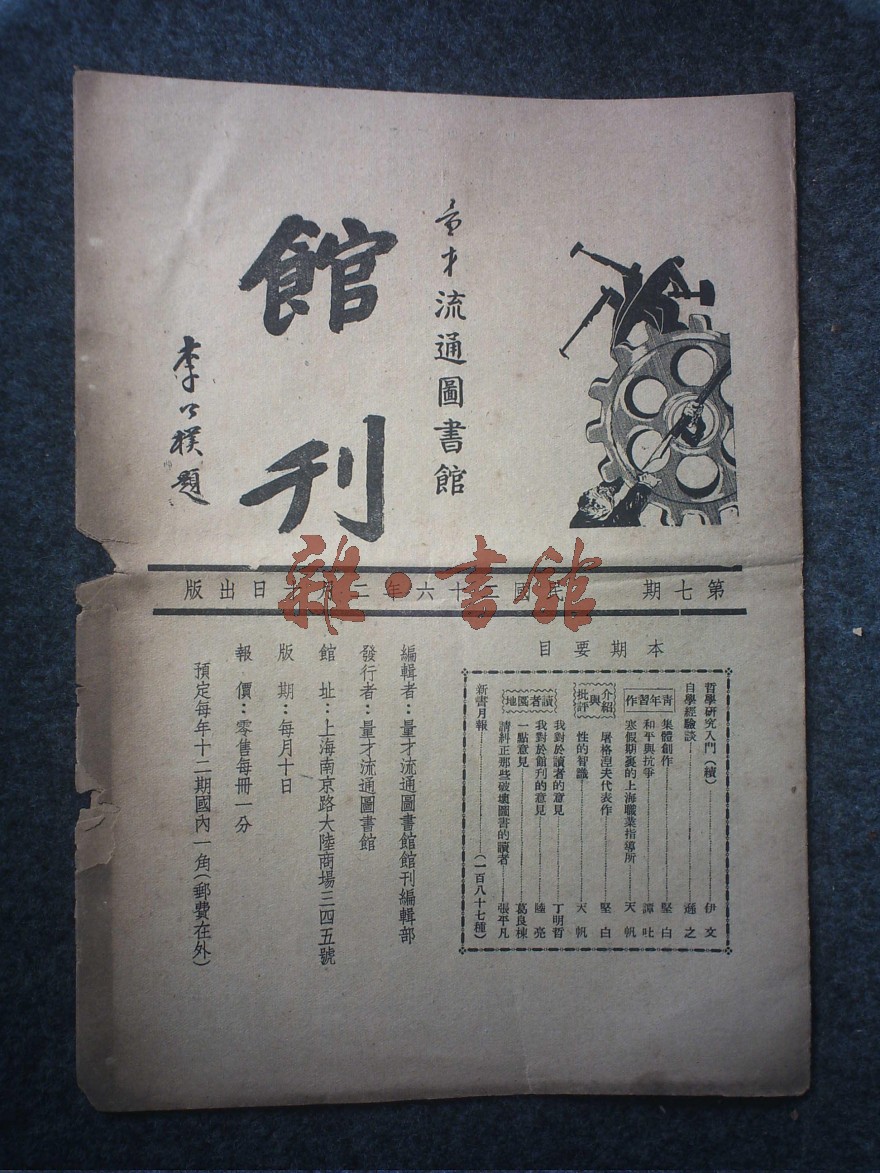 量才流通圖書館
館刊
李公樸題
第七期 民國二十六年二月十日出版
本期要目
哲學研究入門（續）………伊文
自學經驗談………遜之
青年習作
集體創作………堅白
和平與抗爭………譚吐
寒假期裏的上海職業指導所………天帆
介紹與批評
屠格涅夫代表作………堅白
性的智識………天帆
讀者園地
我對於讀者的意見………丁明哲
我對於館刊的意見………陸亮
一點意見………葛良棟
請糾正那些破壞圖書的讀者………張平凡
新書月報………（一百八十七種）
編輯者：量才流通圖書館館刊編輯部
發行者：量才流通圖書館
館址：上海南京路大陸商場三四五號
版期：每月十日
報價：零售每冊一分
預定每年十二期國內一角（郵費在外）
雜·書館